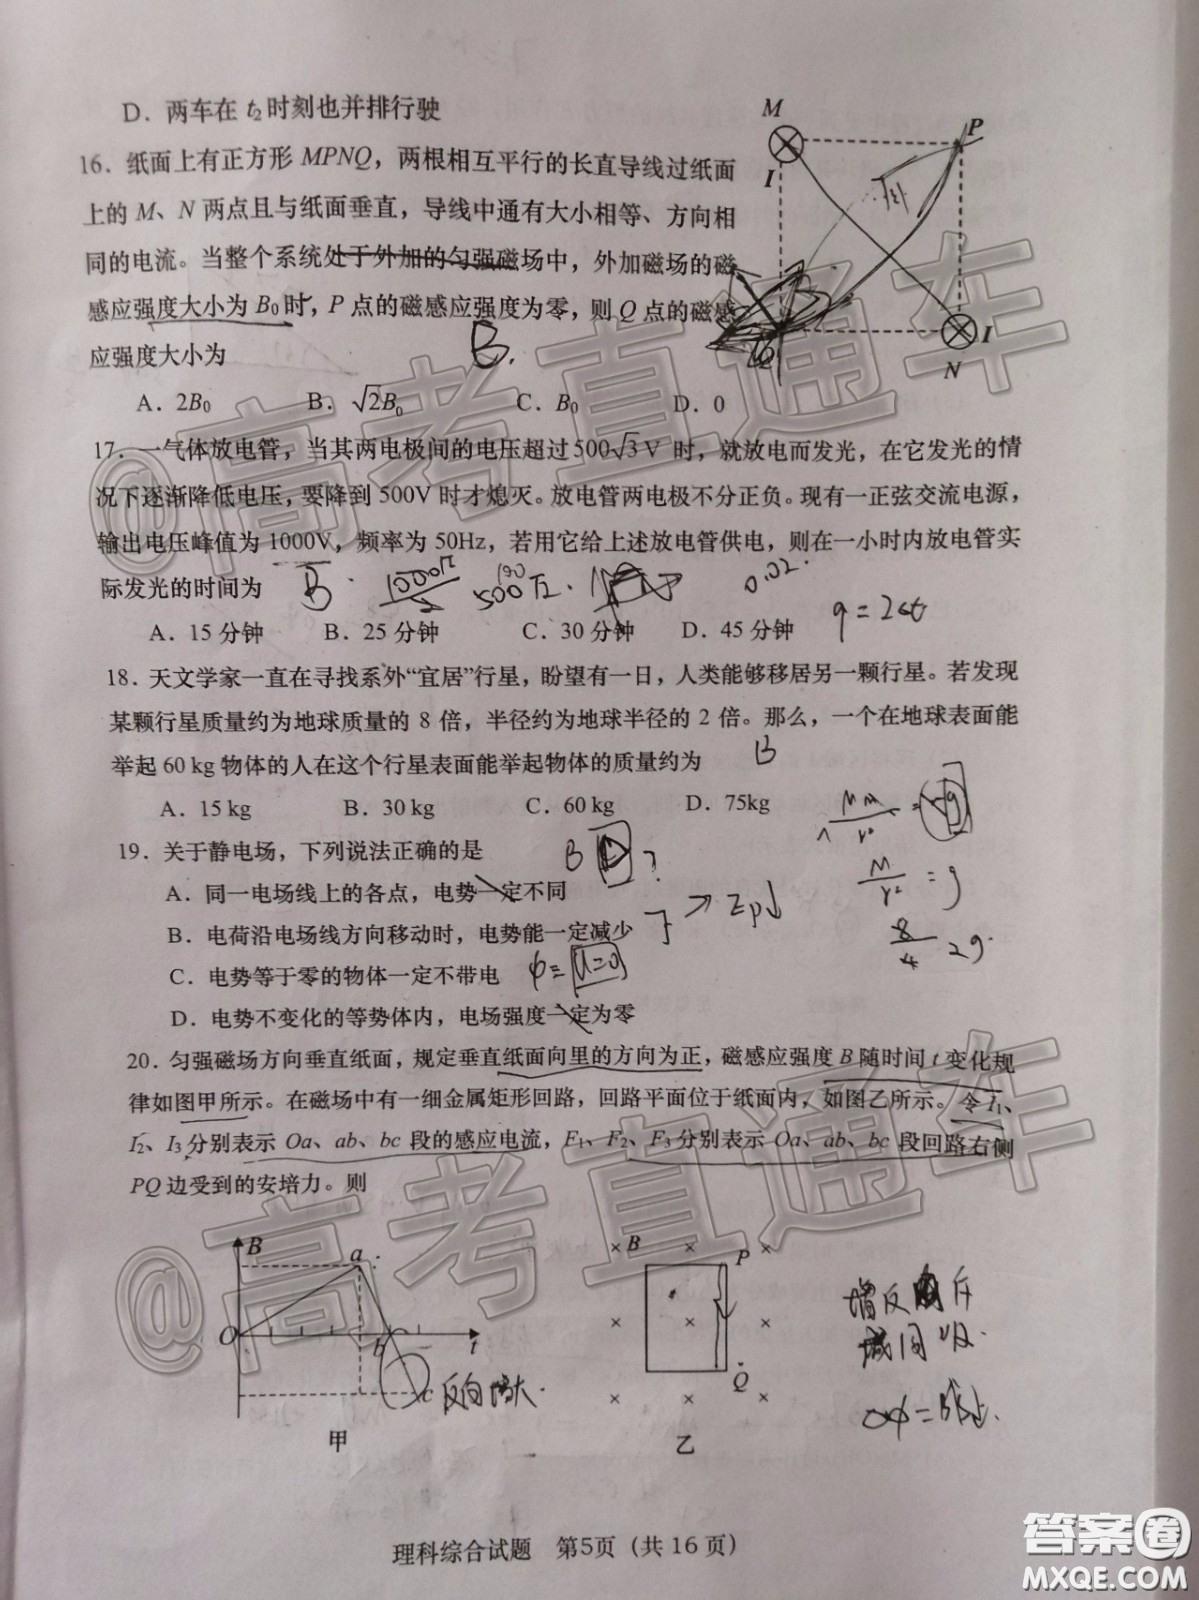 D．两车在 t₂ 时刻也并排行驶
16．纸面上有正方形 MPNQ，两根相互平行的长直导线过纸面
上的 M、N 两点且与纸面垂直，导线中通有大小相等、方向相
同的电流。当整个系统处于外加的匀强磁场中，外加磁场的磁
感应强度大小为 B₀ 时，P 点的磁感应强度为零，则 Q 点的磁感
应强度大小为
B.
A．2B₀ B．√2B₀ C．B₀ D．0
M
P
I
I
N
17．一气体放电管，当其两电极间的电压超过500√3 V 时，就放电而发光，在它发光的情
况下逐渐降低电压，要降到 500V 时才熄灭。放电管两电极不分正负。现有一正弦交流电源，
输出电压峰值为 1000V，频率为 50Hz，若用它给上述放电管供电，则在一小时内放电管实
际发光的时间为
B. 500√2 0.02.
A．15 分钟 B．25 分钟 C．30 分钟 D．45 分钟
18．天文学家一直在寻找系外“宜居”行星，盼望有一日，人类能够移居另一颗行星。若发现
某颗行星质量约为地球质量的 8 倍，半径约为地球半径的 2 倍。那么，一个在地球表面能
举起 60 kg 物体的人在这个行星表面能举起物体的质量约为 B
A．15 kg B．30 kg C．60 kg D．75kg
19．关于静电场，下列说法正确的是 B D ?
A．同一电场线上的各点，电势一定不同
B．电荷沿电场线方向移动时，电势能一定减少
C．电势等于零的物体一定不带电
D．电势不变化的等势体内，电场强度一定为零
M/r² = g
8/4 2g.
20．匀强磁场方向垂直纸面，规定垂直纸面向里的方向为正，磁感应强度 B 随时间 t 变化规
律如图甲所示。在磁场中有一细金属矩形回路，回路平面位于纸面内，如图乙所示。令 I₁、
I₂、I₃ 分别表示 Oa、ab、bc 段的感应电流，F₁、F₂、F₃ 分别表示 Oa、ab、bc 段回路右侧
PQ 边受到的安培力。则
B
a
O
b
t
c 反向增大.
甲
B
P
Q
乙
理科综合试题 第5页（共 16 页）
@高考直通车
@高考直通车
答案圈
MXQE.COM